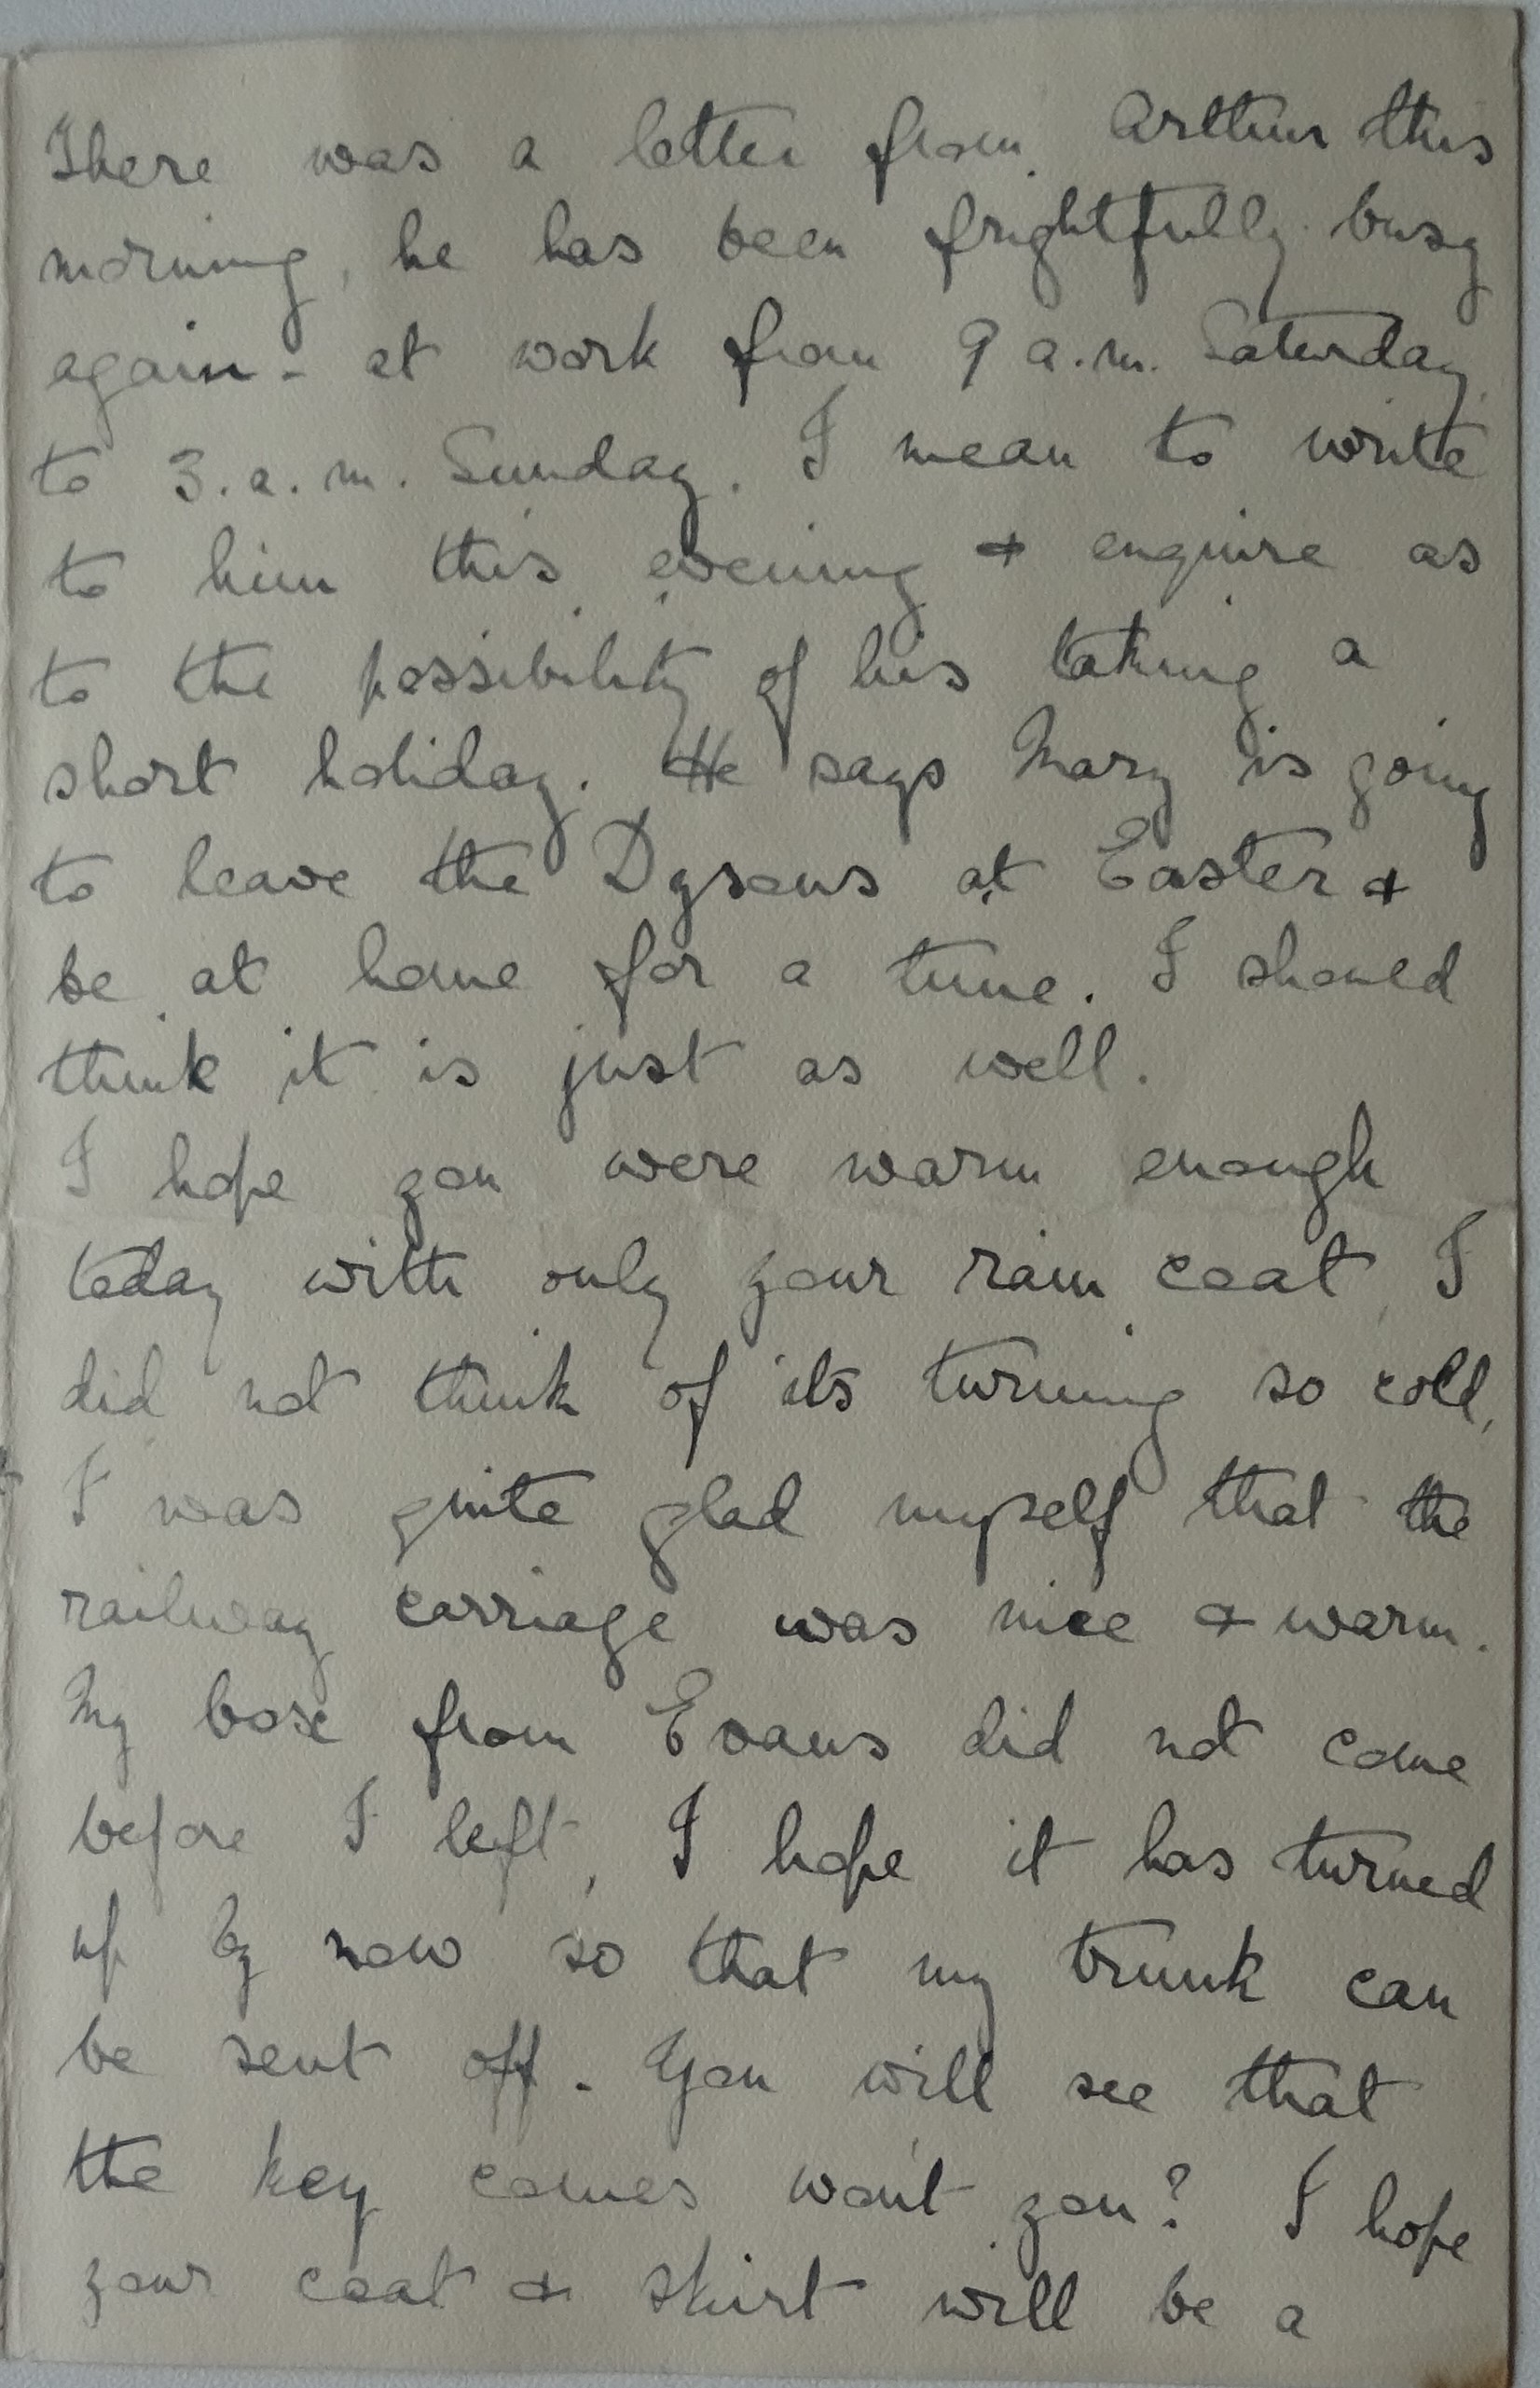 There was a letter from Arthur this
morning, he has been frightfully busy
again - at work from 9 a.m. Saturday
to 3.a.m. Sunday. I mean to write
to him this evening & enquire as
to the possibility of his taking a
short holiday. He says Mary is going
to leave the Dysons at Easter &
be at home for a time. I should
think it is just as well.
I hope you were warm enough
today with only your rain coat, I
did not think of its turning so cold,
I was quite glad myself that the
railway carriage was nice & warm.
My box from Evans did not come
before I left, I hope it has turned
up by now so that my trunk can
be sent off. You will see that
the key comes won't you? I hope
your coat & skirt will be a